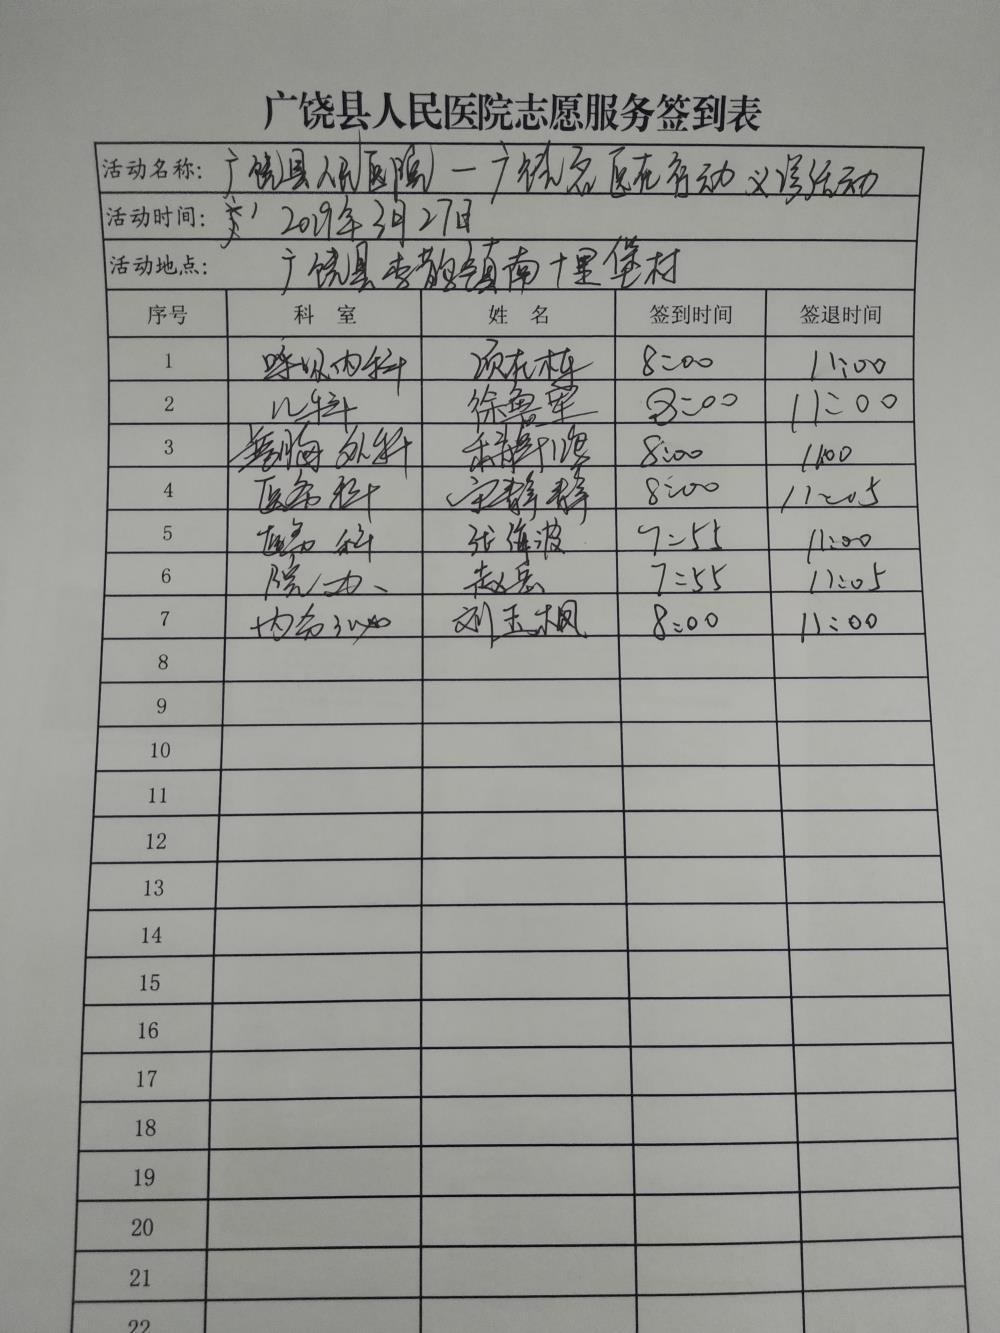 广饶县人民医院志愿服务签到表
活动名称: 广饶县人民医院—广饶名医在行动义诊活动
活动时间: 2019年3月27日
活动地点: 广饶县李鹊镇南十里堡村
序号 科 室 姓 名 签到时间 签退时间
1 呼吸内科 8:00 11:00
2 儿科 徐鲁军 8:00 11:00
3 普胸外科 8:00 11:00
4 医务科 宋静静 8:00 11:05
5 医务科 张维波 7:55 11:00
6 院办 赵磊 7:55 11:05
7 刘玉枫 8:00 11:00
8
9
10
11
12
13
14
15
16
17
18
19
20
21
22